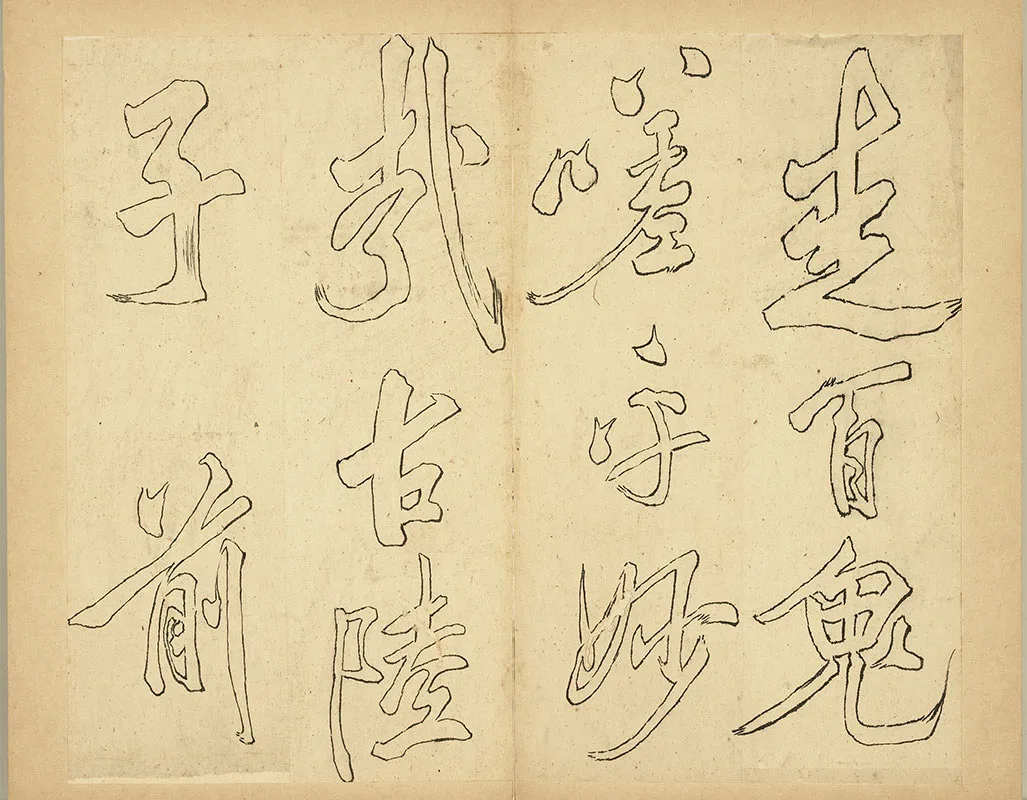 走百鬼
嗟乎妙
哉古陸
子前